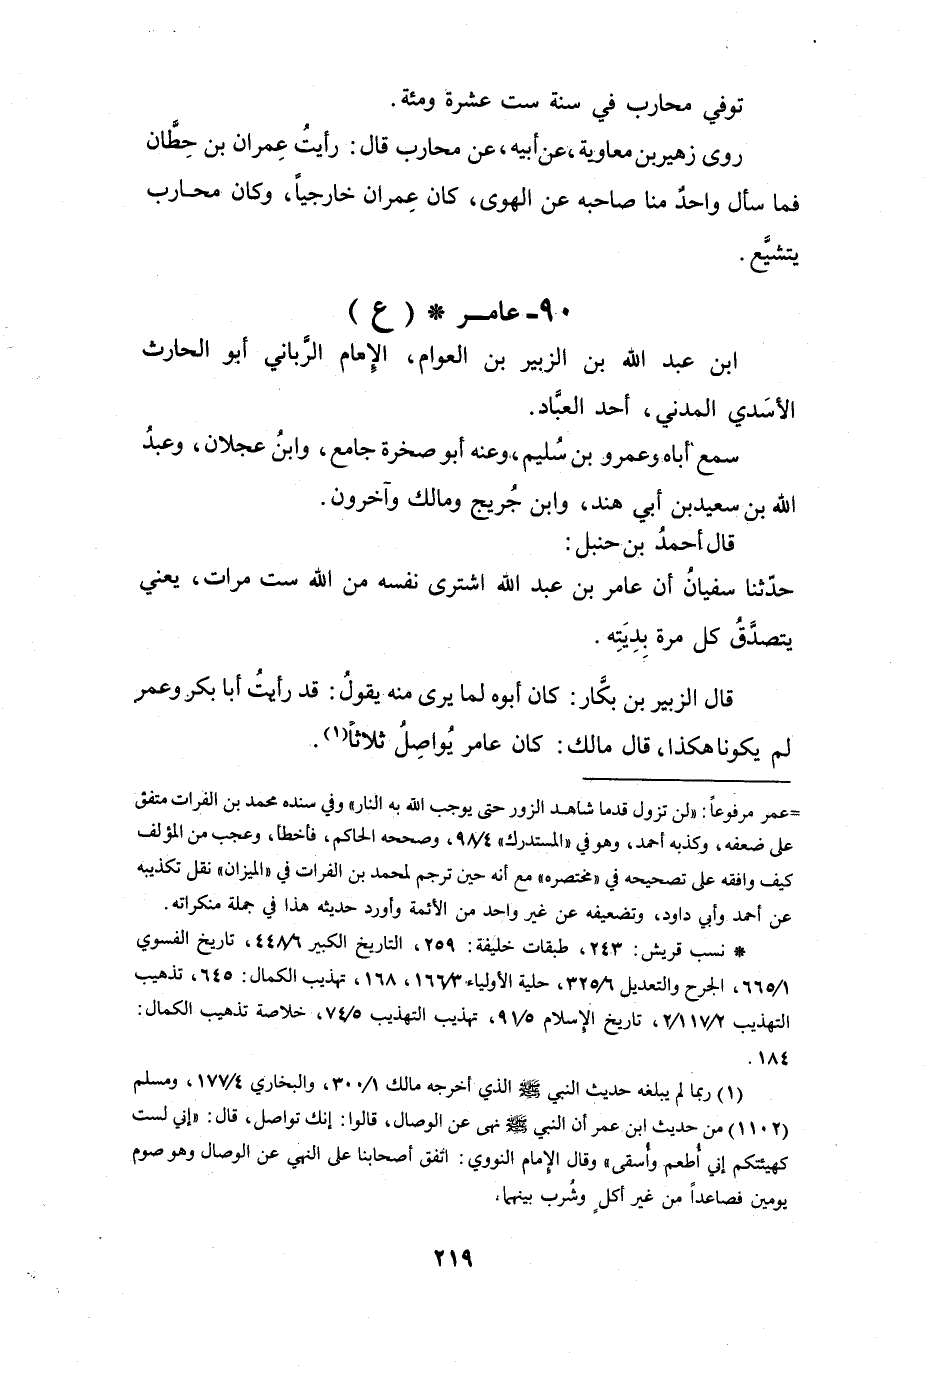 توفي محارب في سنة ست عشرة ومئة .
روى زهير بن معاوية ، عن أبيه ، عن محارب قال : رأيتُ عِمران بن حِطَّان
فما سأل واحدٌ منا صاحبه عن الهوى ، كان عِمران خارجياً ، وكان محارب
يتشيَّع .
٩٠ - عامر * ( ع )
ابن عبد الله بن الزبير بن العوام ، الإمام الرَّباني أبو الحارث
الأسَدي المدني ، أحد العبَّاد .
سمع أباه وعمرو بن سُليم ، وعنه أبو صخرة جامع ، وابنُ عجلان ، وعبدُ
الله بن سعيد بن أبي هند ، وابن جُريج ومالك وآخرون .
قال أحمدُ بن حنبل :
حدّثنا سفيانُ أن عامر بن عبد الله اشترى نفسه من الله ست مرات ، يعني
يتصدَّقُ كل مرة بِدِيَتِه .
قال الزبير بن بكَّار : كان أبوه لما يرى منه يقولُ : قد رأيتُ أبا بكر وعمر
لم يكونا هكذا ، قال مالك : كان عامر يُواصِلُ ثلاثاً(١) .
=عمر مرفوعاً : «لن تزول قدما شاهد الزور حتى يوجب الله به النار» وفي سنده محمد بن الفرات متفق
على ضعفه ، وكذبه أحمد ، وهو في «المستدرك» ٩٨/٤ ، وصححه الحاكم ، فأخطأ ، وعجب من المؤلف
كيف وافقه على تصحيحه في «مختصره» مع أنه حين ترجم لمحمد بن الفرات في «الميزان» نقل تكذيبه
عن أحمد وأبي داود ، وتضعيفه عن غير واحد من الأئمة وأورد حديثه هذا في جملة منكراته .
* نسب قريش : ٢٤٣ ، طبقات خليفة : ٢٥٩ ، التاريخ الكبير ٤٤٨/٦ ، تاريخ الفسوي
٦٦٥/١ ، الجرح والتعديل ٣٢٥/٦ ، حلية الأولياء ١٦٦/٣ ، ١٦٨ ، تهذيب الكمال : ٦٤٥ ، تذهيب
التهذيب ٢/١١٧/٢ ، تاريخ الإسلام ٩١/٥ ، تهذيب التهذيب ٧٤/٥ ، خلاصة تذهيب الكمال :
١٨٤ .
(١) ربما لم يبلغه حديث النبي ﷺ الذي أخرجه مالك ٣٠٠/١ ، والبخاري ١٧٧/٤ ، ومسلم
(١١٠٢) من حديث ابن عمر أن النبي ﷺ نهى عن الوصال ، قالوا : إنك تواصل ، قال : «إني لست
كهيئتكم إني أُطعم وأُسقى» وقال الإمام النووي : اتفق أصحابنا على النهي عن الوصال وهو صوم
يومين فصاعداً من غير أكلٍ وشُرب بينهما .
٢١٩